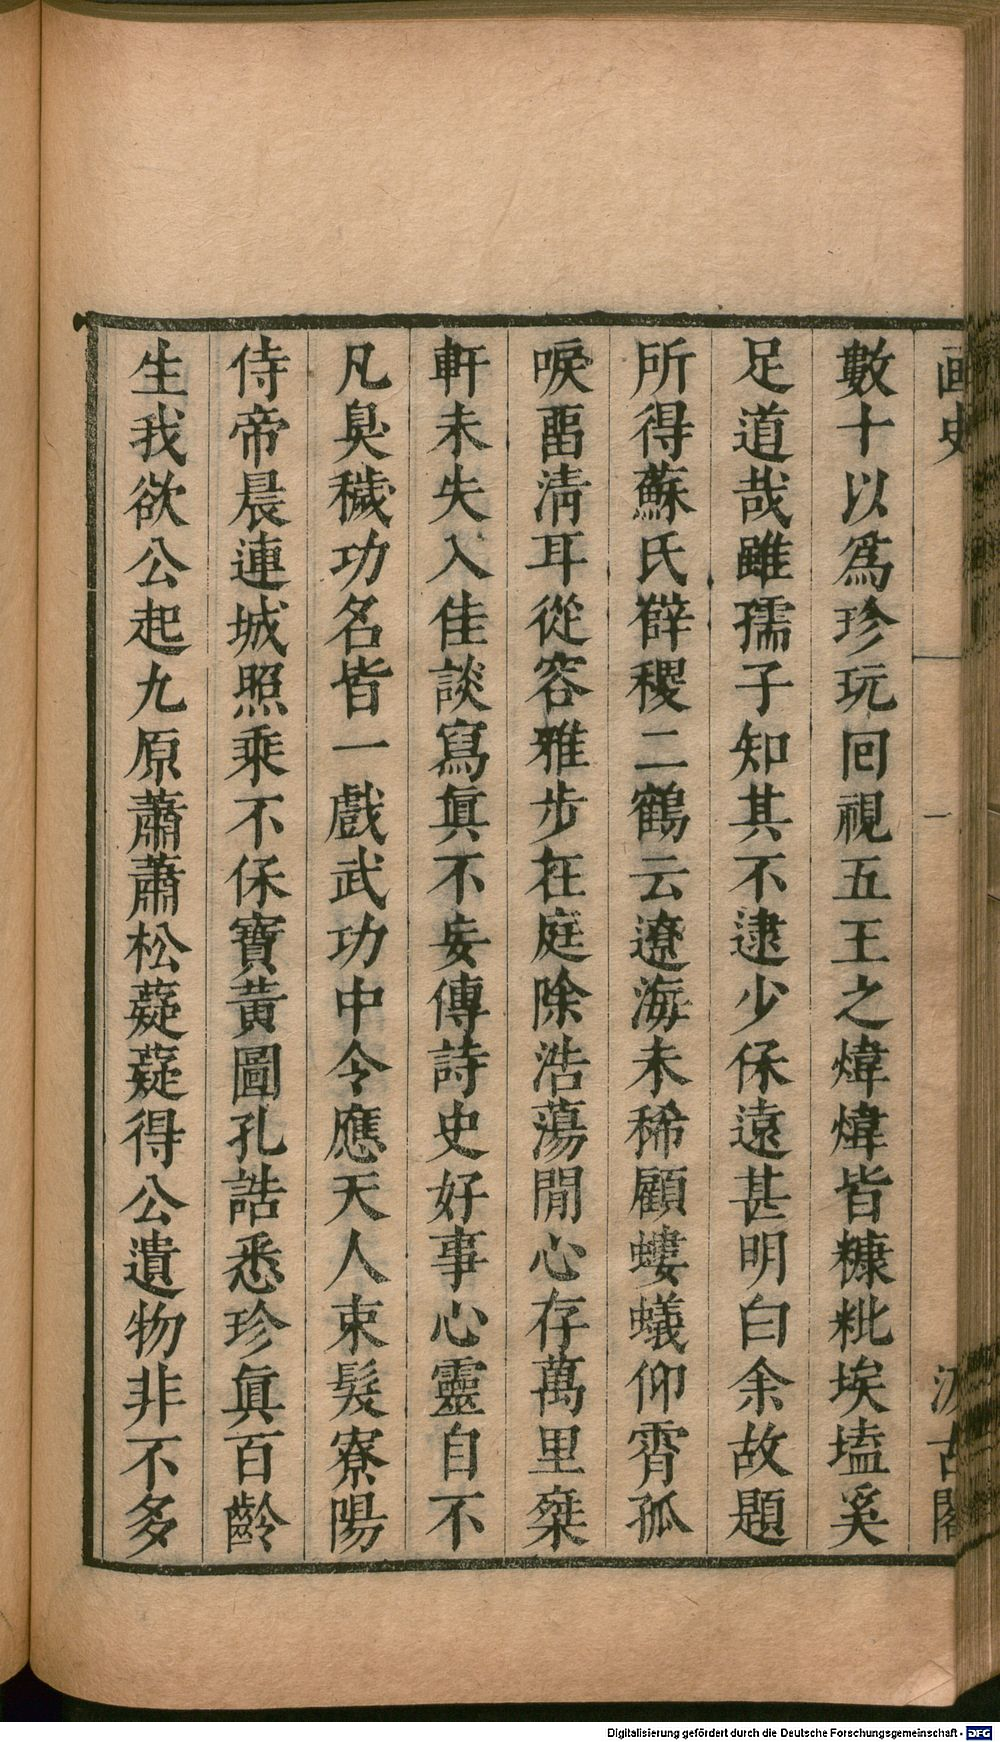 画史 一 汲古閣
數十以爲珍玩回視五王之煒煒皆糠粃埃𡏖奚
足道哉雖孺子知其不逮少保遠甚明白余故題
所得蘇氏薛稷二鶴云遼海未稀顧螻蟻仰霄孤
唳畱淸耳從容雅步在庭除浩蕩閒心存萬里粲
軒未失入佳談寫眞不妄傳詩史好事心靈自不
凡臭穢功名皆一戲武功中令應天人束髮寮陽
侍帝晨連城照乘不保寶黃圖孔誥悉珍眞百齡
生我欲公起九原蕭蕭松薿薿得公遺物非不多
Digitalisierung gefördert durch die Deutsche Forschungsgemeinschaft - DFG